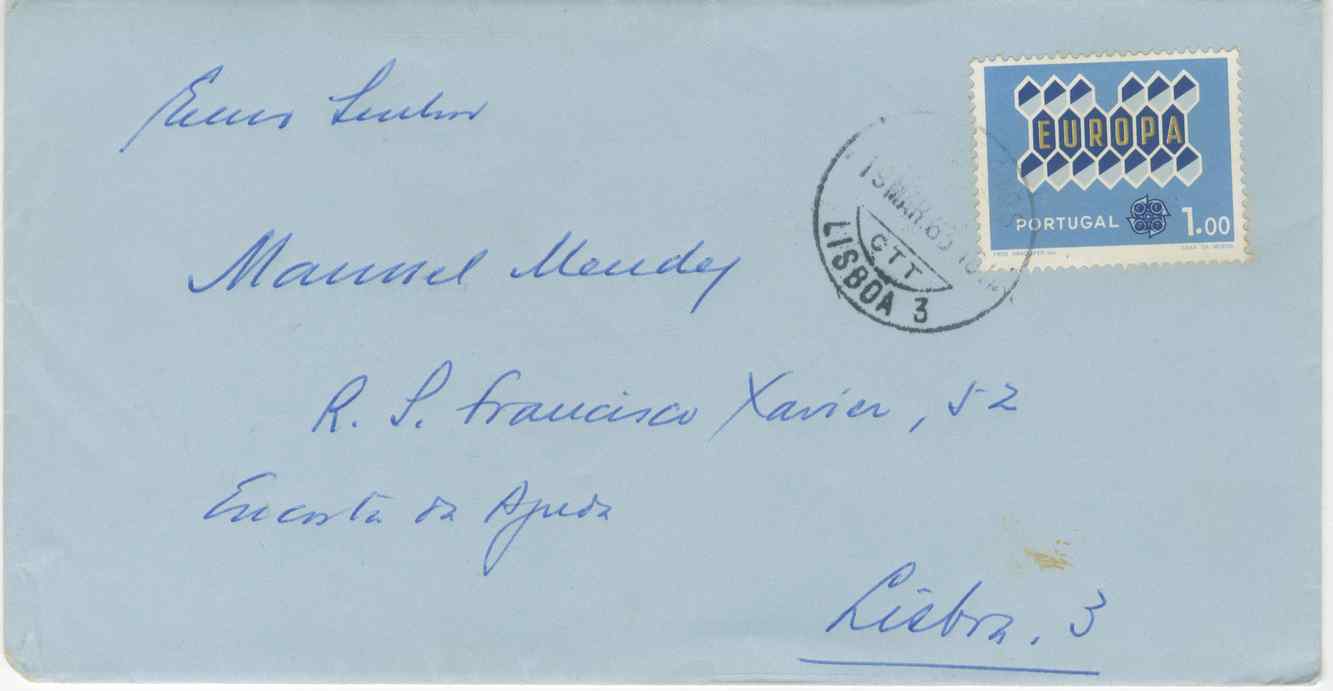 Exmo Senhor
EUROPA
PORTUGAL 1.00
CTT
LISBOA 3
Manuel Mendes
R. S. Francisco Xavier, 52
Encosta da Ajuda
Lisboa. 3